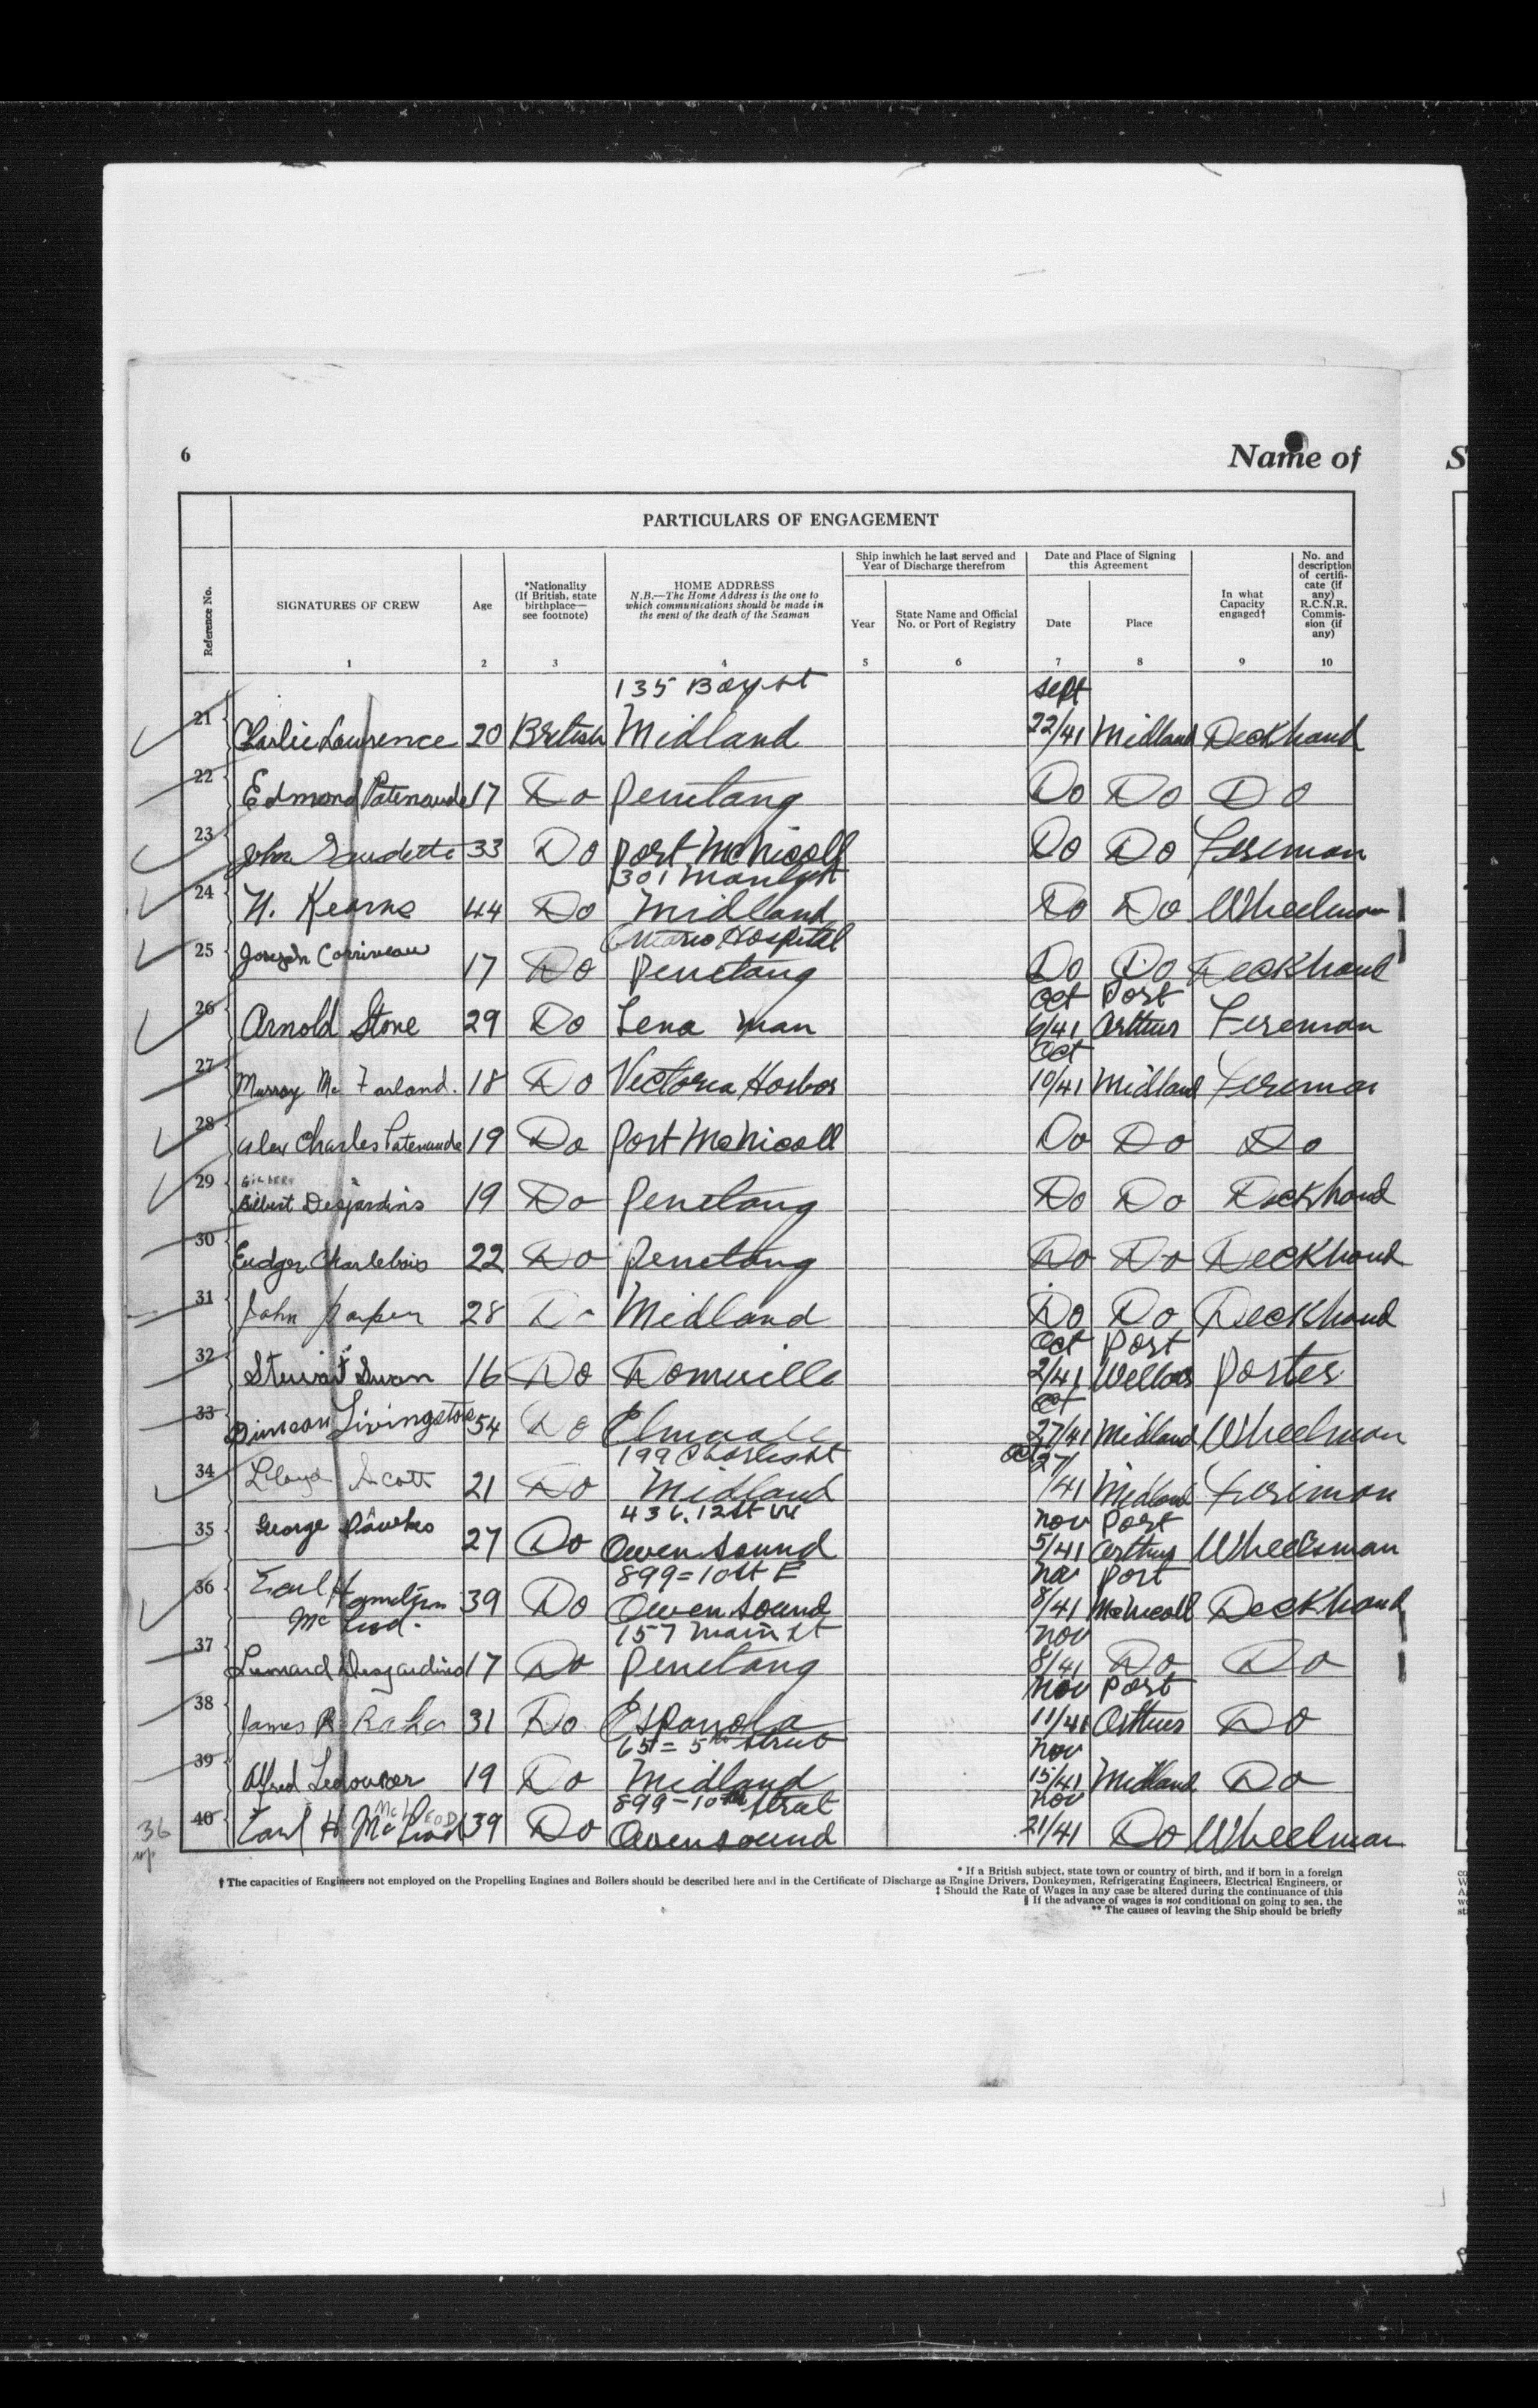 6
Name of
S
PARTICULARS OF ENGAGEMENT
Reference No.
SIGNATURES OF CREW
Age
*Nationality
(If British, state
birthplace—
see footnote)
HOME ADDRESS
N.B.—The Home Address is the one to
which communications should be made in
the event of the death of the Seaman
Ship inwhich he last served and
Year of Discharge therefrom
Year
State Name and Official
No. or Port of Registry
Date and Place of Signing
this Agreement
Date
Place
In what
Capacity
engaged†
No. and
description
of certifi-
cate (if
any)
R.C.N.R.
Commis-
sion (if
any)
1 2 3 4 5 6 7 8 9 10
135 Bay st Sept
21 Charlie Lawrence 20 British Midland 22/41 Midland Deckhand
22 Edmond Patenaude 17 Do Penetang Do Do Do
23 John Gaudette 33 Do Port McNicoll Do Do Fireman
301
24 N. Kearns 44 Do Midland Do Do Wheelman
Ontario Hospital
25 Joseph Corriveau 17 Do Penetang Do Do Deckhand
Oct Port
26 Arnold Stone 29 Do Lena man 6/41 Arthur Fireman
Oct
27 Murray Mc Farland. 18 Do Victoria Harbor 10/41 Midland Fireman
28 Alex Charles Patenaude 19 Do Port McNicoll Do Do Do
GILBERT
29 Gilbert Desjardins 19 Do Penetang Do Do Deckhand
30 Eudger Charlebois 22 Do Penetang Do Do Deckhand
31 John 28 Do Midland Do Do Deckhand
Oct Port
32 Stewart Swan 16 Do 2/41 Weller Porter
Oct
33 Duncan Livingstone 54 Do Elmvale 27/41 Midland Wheelman
199 Charles st Oct 27/
34 Lloyd Scott 21 Do Midland /41 Midland Fireman
436. 12 St W Nov Port
35 George 27 Do Owen Sound 5/41 Arthur Wheelsman
899=10 St E Nov Port
36 Earl Hamilton 39 Do Owen Sound 8/41 McNicoll Deckhand
Mc Leod. 157 Main st Nov
37 Leonard Desjardins 17 Do Penetang 8/41 Do Do
Nov Port
38 James R 31 Do Espanola 11/41 Arthur Do
65= 5th Street Nov
39 Alfred 19 Do Midland 15/41 Midland Do
McLEOD 899-10th Street Nov
36 40 Earl H McLeod 39 Do Owen sound 21/41 Do Wheelman
* If a British subject, state town or country of birth, and if born in a foreign
† The capacities of Engineers not employed on the Propelling Engines and Boilers should be described here and in the Certificate of Discharge as Engine Drivers, Donkeymen, Refrigerating Engineers, Electrical Engineers, or
‡ Should the Rate of Wages in any case be altered during the continuance of this
‖ If the advance of wages is not conditional on going to sea, the
** The causes of leaving the Ship should be briefly